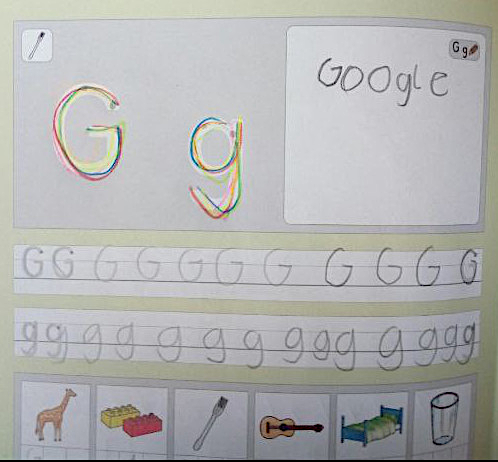 G g
G g
Google
G G G G G G G G G G G
g g g g g g g g g g g g g g